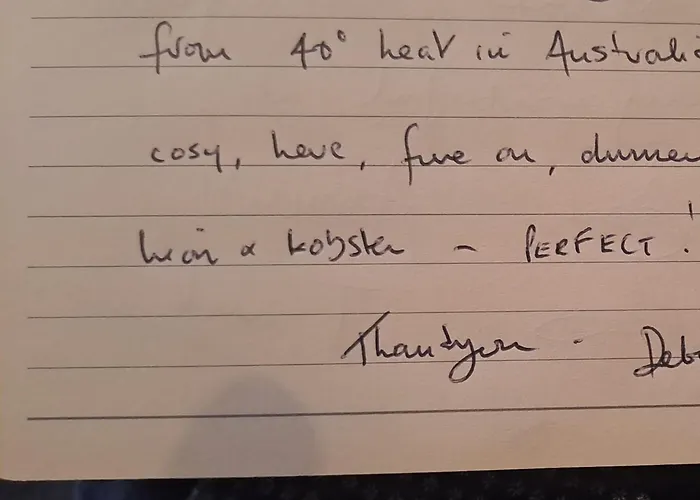 from 40° heat in Australia
cosy, here, fire on, dinner
& lobster - PERFECT!
Thankyou - Deb